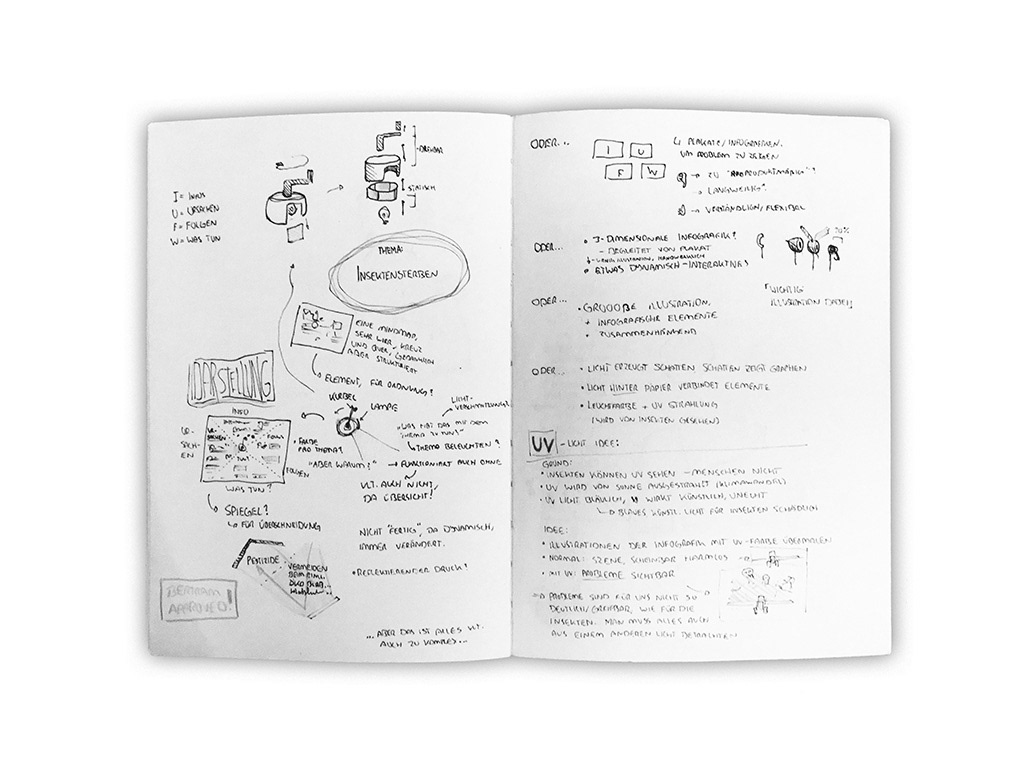 I = INFOS
U = URSACHEN
F = FOLGEN
W = WAS TUN
DREHBAR
STATISCH
THEMA:
INSEKTENSTERBEN
EINE MINDMAP,
SEHR WIRR, KREUZ
UND QUER,
ABER STRUKTURIERT
ELEMENT, FÜR ORDNUNG?
DERSTELLUNG
KURBEL
LAMPE
LICHT-
"WAS HAT DAS MIT DEM
THEMA ZU TUN?"
THEMA BELEUCHTEN?
INFO
UR-
SACH-
EN
FOLGEN
WAS TUN?
• FARBE
PRO THEMA?
"ABER WARUM?"
→ FUNKTIONIERT AUCH OHNE
VLT. AUCH NICHT,
DA ÜBERSICHT!
SPIEGEL?
FÜR ÜBERSCHNEIDUNG
NICHT "FERTIG", DA DYNAMISCH,
IMMER VERÄNDERT.
• REFLEKTIERENDER DRUCK?
PESTIZIDE
VERMEIDEN
BEIM
BERTRAM
APPROVED!
...ABER DAS IST ALLES VLT.
AUCH ZU KOMPLEX...
ODER...
I U
F W
4 PLAKATE/INFOGRAFIKEN.
UM PROBLEM ZU ZEIGEN
→ ZU
→ LANGWEILIG"
→ VERSTÄNDLICH/FLEXIBEL
ODER...
• 3-DIMENSIONALE INFOGRAFIK?
- BEGLEITET VON PLAKAT
• ETWAS DYNAMISCH-INTERAKTIVES
70%
"WICHTIG
ILLUSTRATION DABEI"
ODER...
• GROOOßE ILLUSTRATION.
+ INFOGRAFISCHE ELEMENTE
+ ZUSAMMENHÄNGEND
ODER...
• LICHT ERZEUGT SCHATTEN SCHATTEN ZEIGT GRAPHEN
• LICHT HINTER PAPIER VERBINDET ELEMENTE
• LEUCHTFARBE + UV STRAHLUNG
(WIRD VON INSEKTEN GESEHEN)
UV - LICHT IDEE:
GRUND:
• INSEKTEN KÖNNEN UV SEHEN - MENSCHEN NICHT
• UV WIRD VON SONNE AUSGESTRAHLT (KLIMAWANDEL)
• UV LICHT BLÄULICH, WIRKT KÜNSTLICH, UNECHT
BLAUES KÜNSTL. LICHT FÜR INSEKTEN SCHÄDLICH
IDEE:
• ILLUSTRATIONEN DER INFOGRAFIK MIT UV-FARBE ÜBERMALEN
• NORMAL: SZENE, SCHEINBAR HARMLOS
• MIT UV: PROBLEME SICHTBAR
PROBLEME SIND FÜR UNS NICHT SO
DEUTLICH/GREIFBAR, WIE FÜR DIE
INSEKTEN. MAN MUSS ALLES AUCH
AUS EINEM ANDEREN LICHT BETRACHTEN.